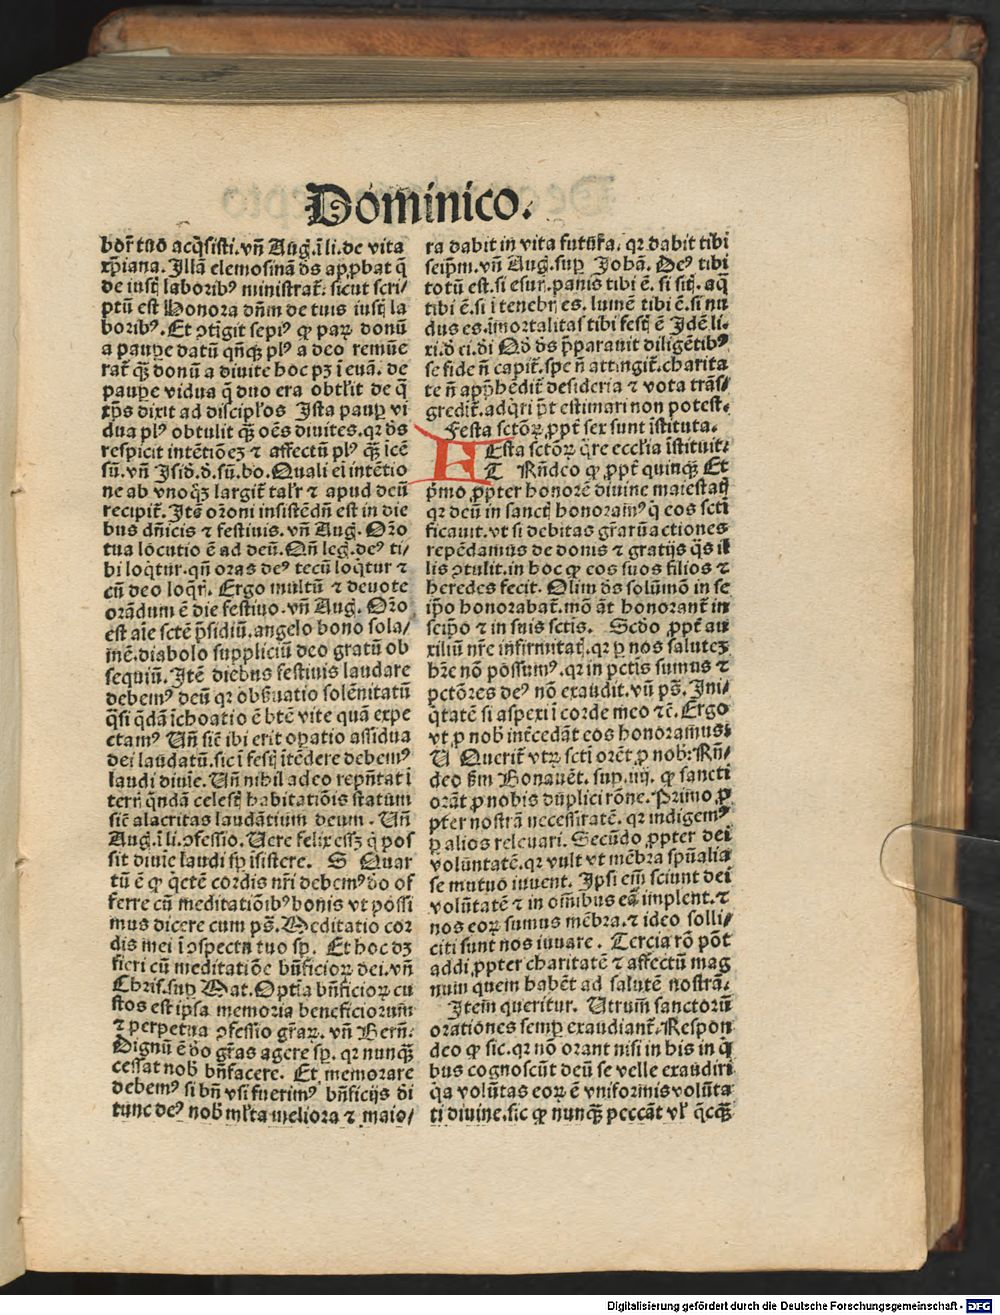 Dominico.
bor̄ tuo acq̄sisti. vn̄ Aug̃. ī li. de vita
xp̄iana. Jllā elemosinā d̄s ap̱pbat q̄
de iustꝭ laboribꝰ ministrat̄. sicut scri/
ptū est Honora dn̄m de tuis iustꝭ la
boribꝰ. Et ɔtīgit sepiꝰ ꝙ paꝝ donū
a paupe datū qn̄qꝫ plꝰ a deo remūe
rat̄ qꝫ̄ donū a diuite hoc pꝫ ī euā. de
paupe vidua q̄ duo era obtl'it de q̄
xp̄s dixit ad discipl'os Jsta paup vi
dua plꝰ obtulit qꝫ̄ oēs diuites. qꝛ d̄s
respicit intētiōeꝫ ⁊ affectū plꝰ qꝫ̄ icē
sū. vn̄ Jsid. d̄. sū. bo. Quali ei intētio
ne ab vnoq̄ꝫ largit̄ tal'r ⁊ apud deū
recipit̄. Jtē or̄oni insistēdū est in die
bus dn̄icis ⁊ festiuis. vn̄ Aug̃. Or̄o
tua locutio ē ad deū. Qn̄ leg̃. deꝰ ti/
bi loq̄tur. qn̄ oras deꝰ tecū loq̄tur ⁊
cū deo loq̄rꝭ. Ergo multū ⁊ deuote
orādum ē die festiuo. vn̄ Aug̃. Or̄o
est aīe sctē p̄sidiū. angelo bono sola/
mē. diabolo suppliciū deo gratū ob
sequiū. Jtē diebus festiuis laudare
debemꝰ deū qꝛ obẜuatio solēnitatū
q̄si q̄dā īchoatio ē btē vite quā expe
ctamꝰ Vn̄ sic̄ ibi erit opatio assidua
dei laudatū. sic ī festꝭ ītēdere debemꝰ
laudi diuīe. Vn̄ nihil adeo rep̄ntat ī
terrꝭ q̄ndā celestꝭ habitatiōis statum
sic̄ alacritas laudātium deum. Vn̄
Aug̃. ī li. ɔfessio. Vere felix essꝫ q̄ pos
sit diuīe laudi sp̱ īsistere. S Quar
tū ē ꝙ q̄etē cordis nr̄i debemꝰ d̄o of
ferre cū meditatiōībꝰ bonis vt possi
mus dicere cum ps̄. Meditatio cor
dis mei ī ɔspectu tuo sp̱. Et hoc dꝫ
fieri cū meditatiōe bn̄ficioꝝ dei. vn̄
Chris. sup Mat. Optīa bn̄ficioꝝ cu
stos est ipsa memoria beneficiorum
⁊ perpetua ɔfessio gr̄aꝝ. vn̄ Bern̄.
Dignū ē d̄o gr̄as agere sp̱. qꝛ nunqꝫ̄
cessat nob̄ bn̄facere. Et memorare
debemꝰ si bn̄ vsi fuerimꝰ bn̄ficijs d̄i
tunc deꝰ nob̄ ml'ta meliora ⁊ maio/
ra dabit in vita futur̄a. qꝛ dabit tibi
seip̄m. vn̄ Aug̃. sup Johā. Deꝰ tibi
totū est. si esurꝭ. panis tibi ē. si sitꝭ. aq̄
tibi ē. si ī tenebrꝭ es. lumē tibi ē. si nu
dus es. īmortalitas tibi
se fide n̄ capit̄. spe n̄ attingit̄. charita
te n̄ app̄hēdit̄ desideria ⁊ vota trās/
gredit̄. adq̄ri p̄t estimari non potest.
Festa sctōꝝ ꝓpt̄ sex sunt īstituta.
FEsta sctōꝝ q̄re ecclīa īstituit.
T Rn̄deo ꝙ ꝓpt̄ quinqꝫ Et
p̄mo ꝓpter honorē diuine maiestatꝭ
qꝛ deū in sanctꝭ honoramꝰ q̄ eos sctī
ficauit. vt si debitas gr̄arū actiones
repēdamus de donis ⁊ gratijs q̄s il
lis ɔtulit. in hoc ꝙ eos suos filios ⁊
heredes fecit. Olim d̄s solūmō in se
ip̄o honorabat̄. mō āt honorant̄ in
seip̄o ⁊ in suis sctīs. Scd̄o ꝓpt̄ au
xiliū nr̄e infirmitatꝭ. qꝛ p nos saluteꝫ
hr̄e nō possumꝰ. qꝛ in pctīs sumus ⁊
pctōres deꝰ nō exaudit. vn̄ ps̄. Jni/
q̄tatē si aspexi ī corde meo ⁊c̄. Ergo
vt ꝓ nob̄ int̄cedāt eos honoramus.
V Querit̄ vtꝝ sctī orēt ꝓ nob̄. Rn̄/
deo ẜm Bonauēt. sup. iiij. ꝙ sancti
orāt ꝓ nobis duplici rōne. Primo ꝓ
pter nostrā necessitatē. qꝛ indigemꝰ
p alios releuari. Secūdo ꝓpter dei
volūntatē. qꝛ vult vt mēbra spūalia
se mutuo iuuent. Jpsi em̄ sciunt dei
volūtatē ⁊ in om̄ibus eā implent. ⁊
nos eoꝝ sumus mēbra. ⁊ ideo solli/
citi sunt nos iuuare. Tercia rō pōt
addi ꝓpter charitatē ⁊ affectū mag
num quem habēt ad salutē nostrā.
Jtem queritur. Vtrum sanctorū
orationes semp exaudiant̄. Respon
deo ꝙ sic. qꝛ nō orant nisi in his in q̄
bus cognoscūt deū se velle exaudiri
q̄a volūtas eoꝝ ē vniformis volūta
ti diuine. sic ꝙ nunqꝫ̄ peccāt vl' q̄cqꝫ̄
Digitalisierung gefördert durch die Deutsche Forschungsgemeinschaft - DFG